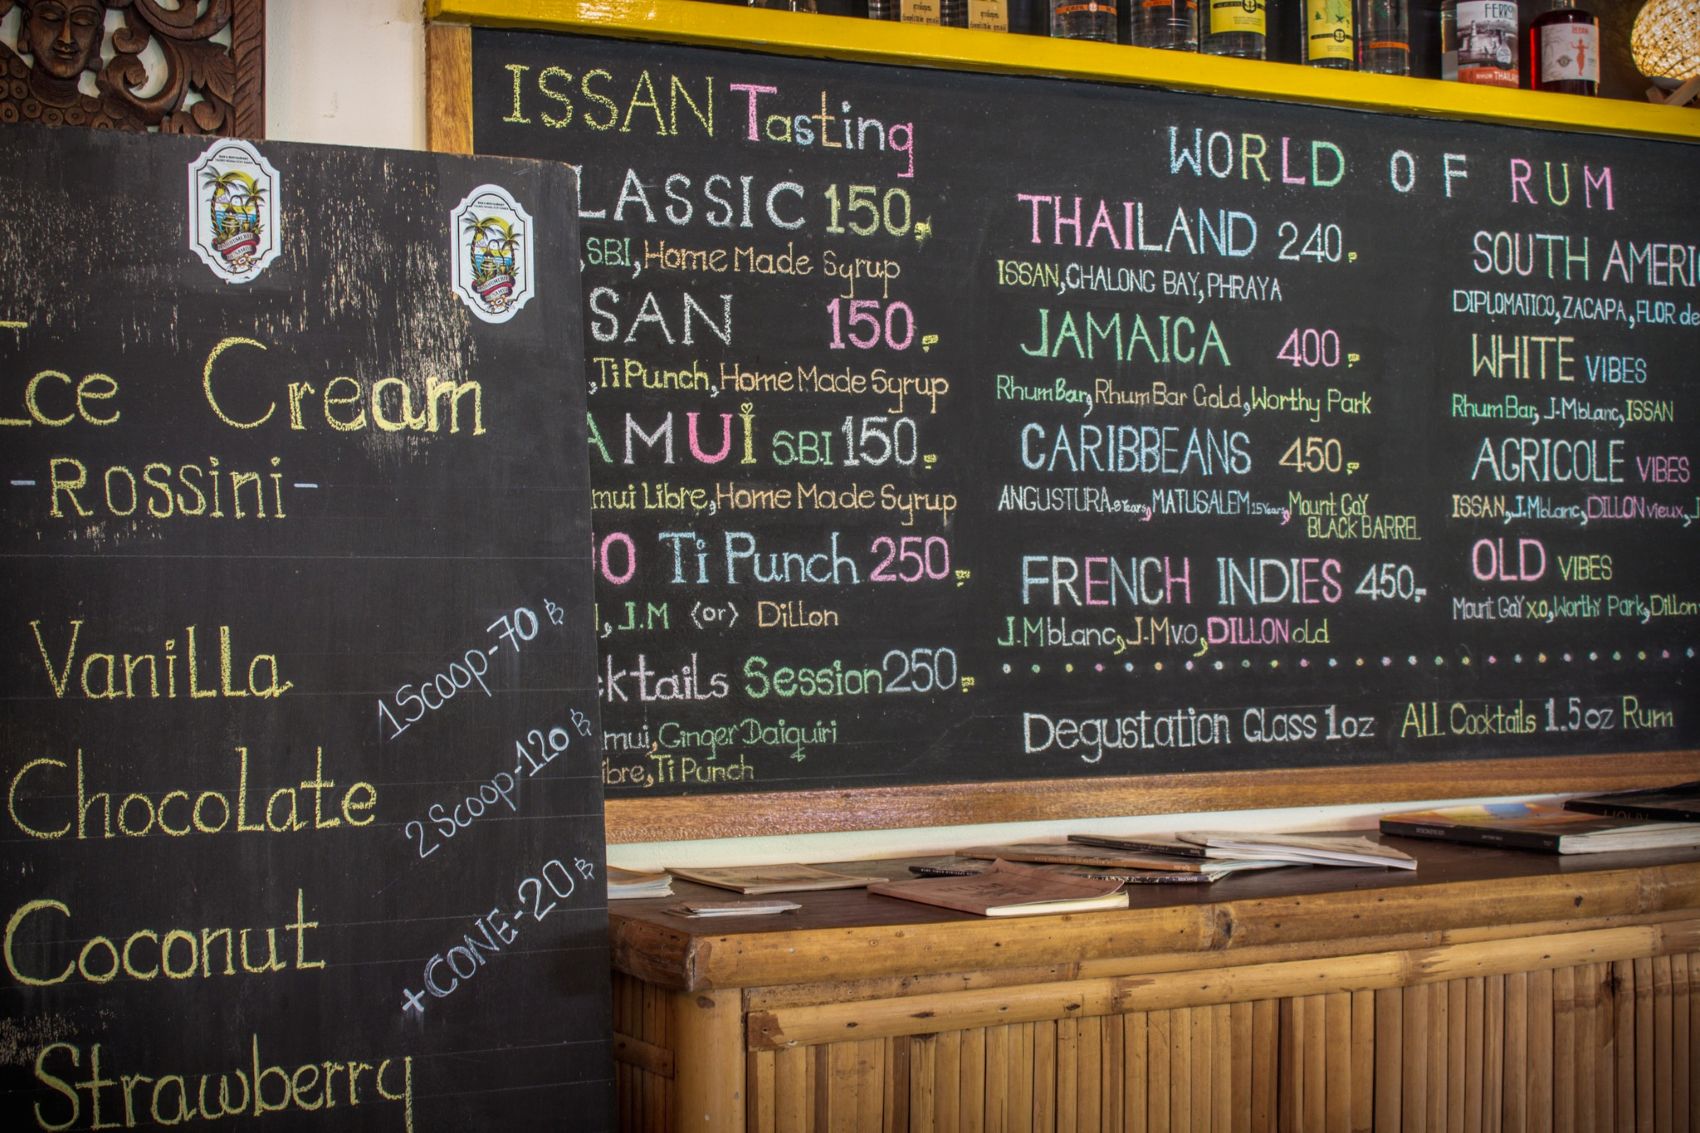 Ice Cream
-Rossini-
Vanilla
1 Scoop-70 ฿
Chocolate
2 Scoop-120 ฿
Coconut
+CONE-20 ฿
Strawberry
ISSAN Tasting
LASSIC 150.-
,SBI, Home Made Syrup
SAN 150.-
,Ti Punch, Home Made Syrup
AMUI SBI 150.-
mui Libre, Home Made Syrup
O Ti Punch 250.-
, J.M (or) Dillon
ktails Session 250.-
mui, Ginger Daiquiri
ibre, Ti Punch
WORLD OF RUM
THAILAND 240.-
ISSAN, CHALONG BAY, PHRAYA
JAMAICA 400.-
Rhum Bar, Rhum Bar Gold, Worthy Park
CARIBBEANS 450.-
ANGUSTURA-8 Years, MATUSALEM 15 Years, Mount Gay
BLACK BARREL
FRENCH INDIES 450.-
J.M blanc, J.M v.o, DILLON old
SOUTH AMERI
DIPLOMATICO, ZACAPA, FLOR de
WHITE VIBES
Rhum Bar, J.M blanc, ISSAN
AGRICOLE VIBES
ISSAN, J.M blanc, DILLON vieux, J
OLD VIBES
Mount Gay x.o, Worthy Park, Dillon
Degustation Glass 1oz ALL Cocktails 1.5 oz Rum